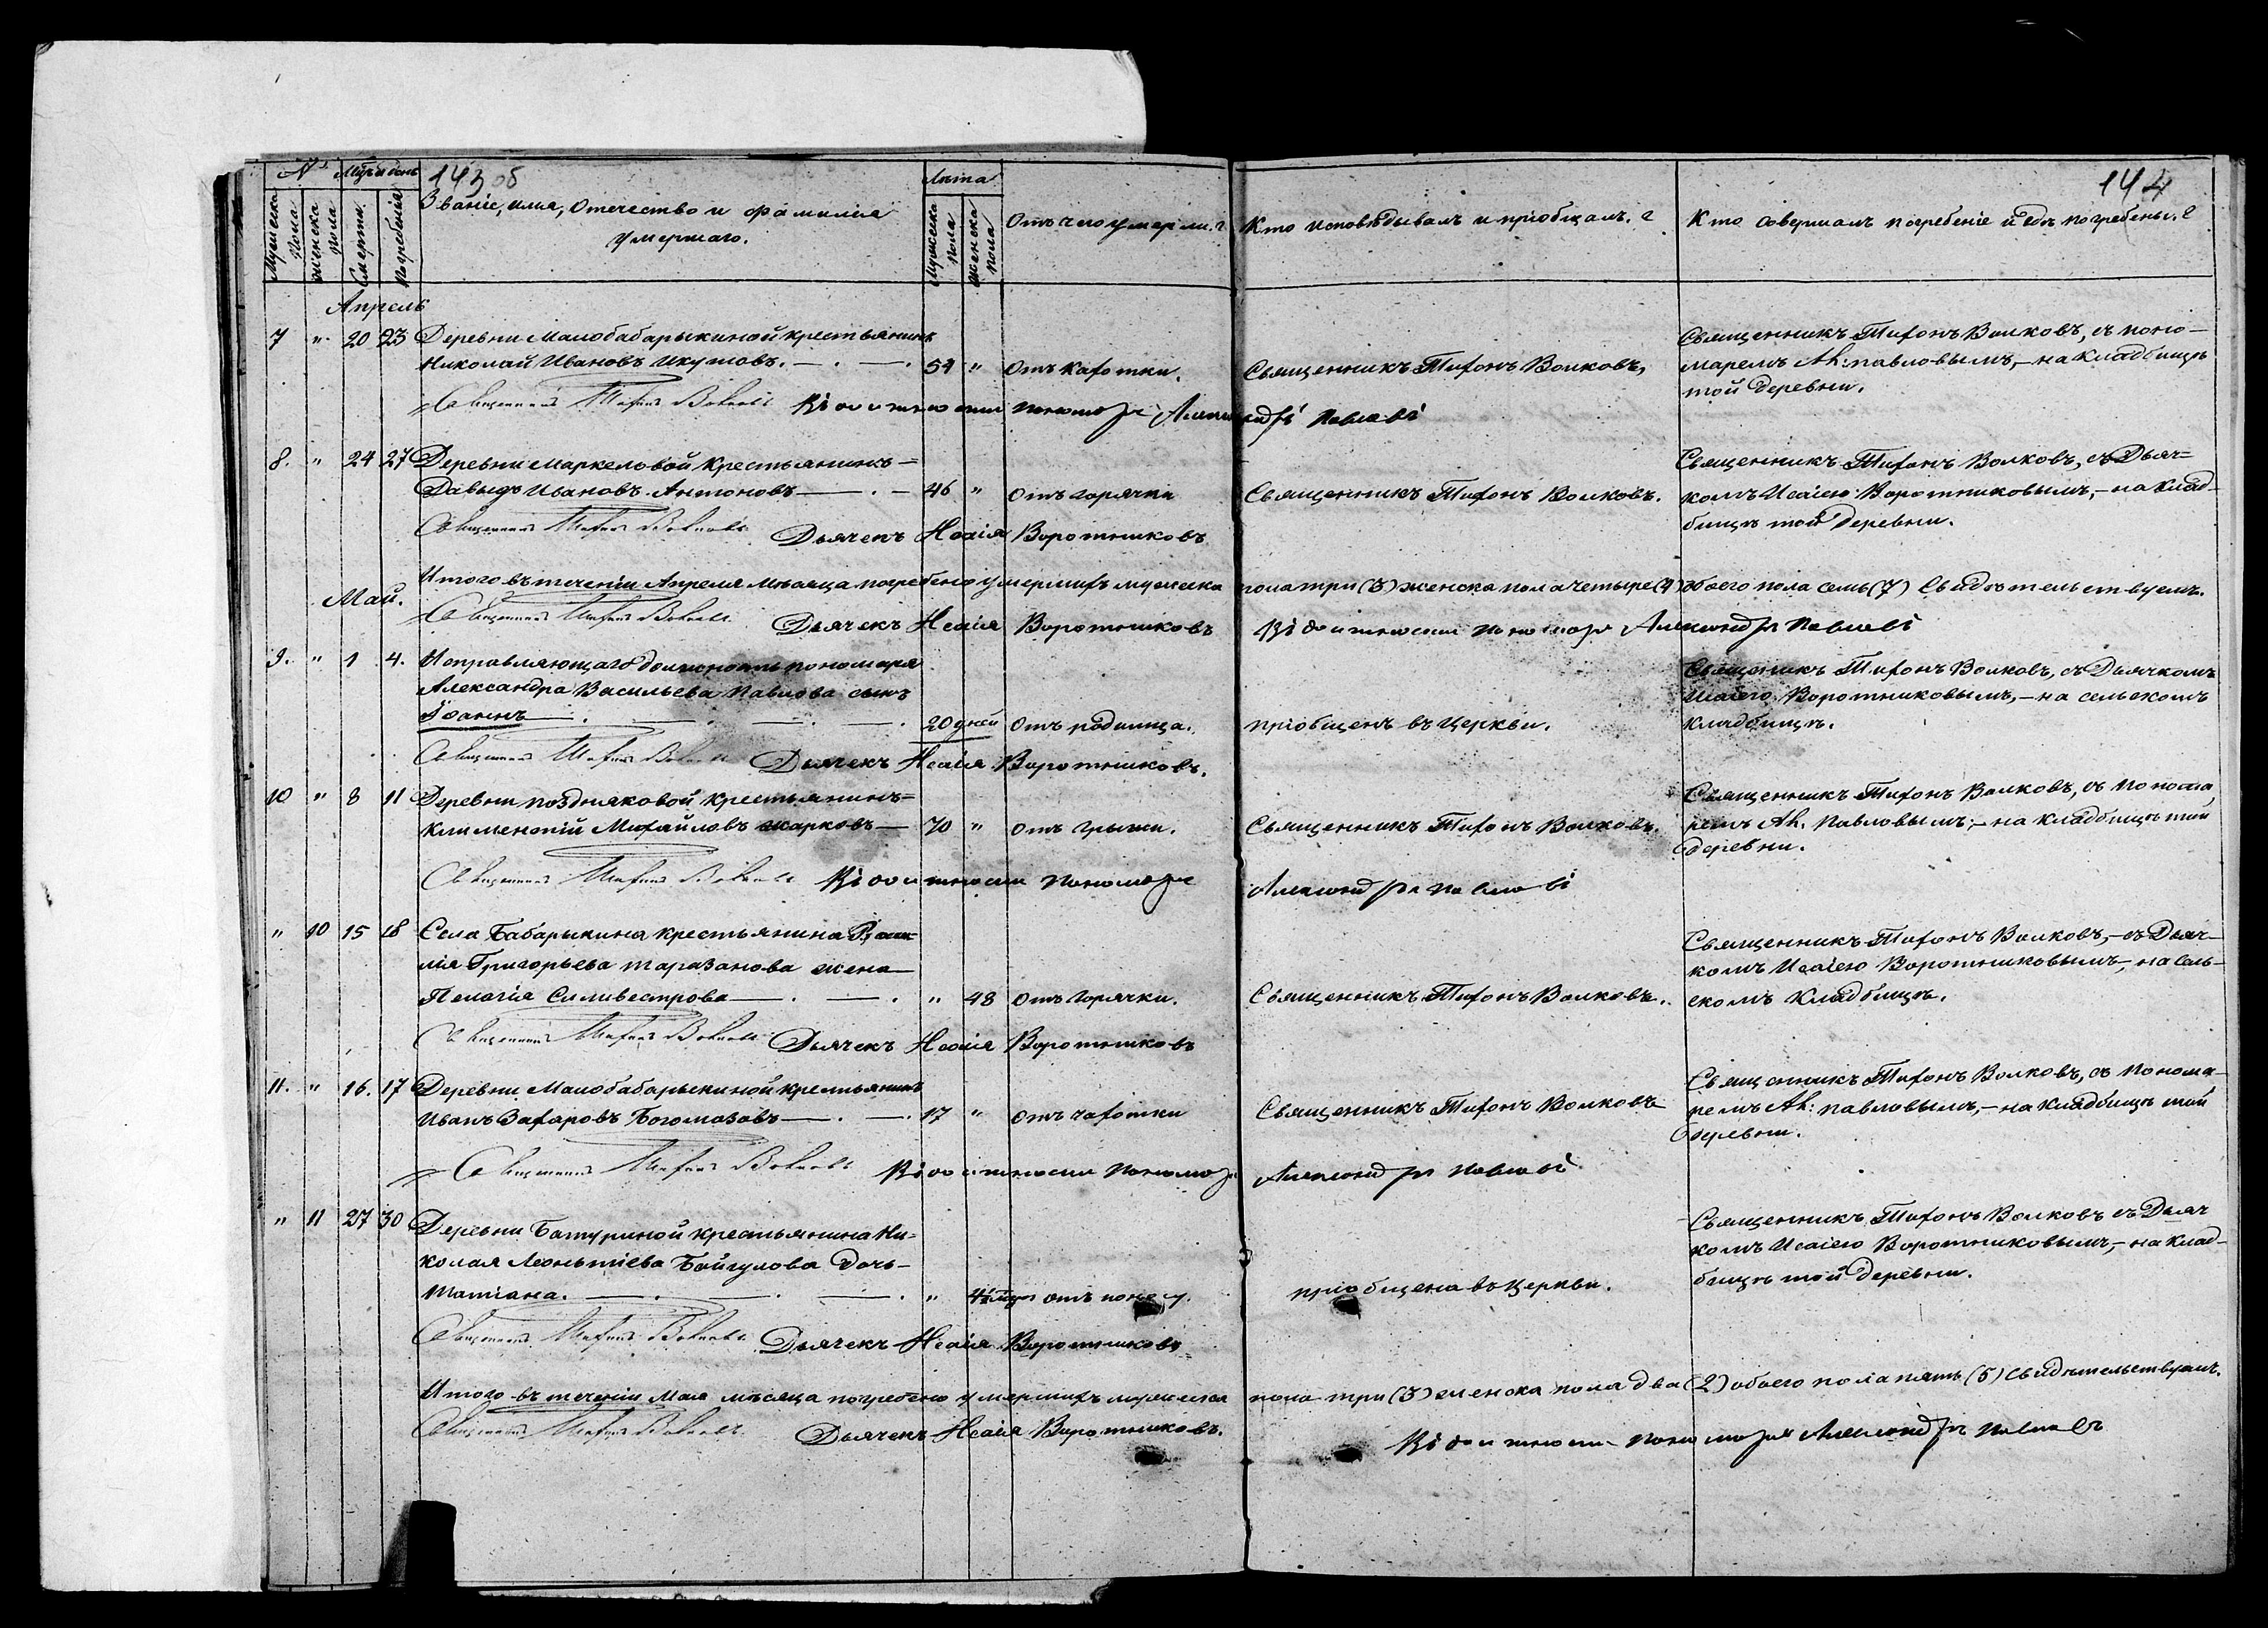 143 об
144
№ Мц̃ъ и день
Лѣта
Мужеска пола
женска пола
Смерти.
Погребенія
Званіе, имя, Отечество и фамилія
умершаго.
Мужеска пола
Женска пола
Отъ чего умерли?
Кто исповѣдывалъ и пріобщалъ.?
Кто совершалъ погребеніе и гдѣ погребены.?
Апрель
7 " 20 23 Деревни Малобабарыкиной крестьянинъ
Николай Ивановъ Икутовъ. — . — . 54 " Отъ чахотки. Священникъ Тихонъ Волковъ,
Священникъ Тихонъ Волковъ, съ поно-
маремъ Ал: Павловымъ, – на кладбищѣ
той деревни.
Священникъ Тихонъ Волковъ пономаря Александръ Павловъ
8. " 24 27 Деревни Маркеловой крестьянинъ –
Давыдъ Ивановъ Антоновъ — . – 46 " Отъ горячки Священникъ Тихонъ Волковъ.
Священникъ Тихонъ Волковъ, съ Дьяч-
комъ Исаіею Воротниковымъ, – на клад-
бищѣ той деревни.
Священникъ Тихонъ Волковъ Дьячекъ Исаія Воротниковъ
Итого въ теченіи Апреля мѣсяца погребено умершихъ мужеска пола три (3) женска пола четыре (4) обоего пола семь (7) Свидѣтельствуемъ.
Май.
Священникъ Тихонъ Волковъ Дьячекъ Исаія Воротниковъ пономаря Александръ Павловъ
9. " 1 4. Исправляющаго должность пономаря
Александра Васильева Павлова сынъ
Іоаннъ — . — . — . — . 20 дней Отъ родимца. пріобщенъ въ Церкви.
Священникъ Тихонъ Волковъ, съ Дьячкомъ
Исаіею Воротниковымъ, – на сельскомъ
кладбищѣ.
Священникъ Тихонъ Волковъ Дьячекъ Исаія Воротниковъ.
10 " 8 11 Деревни Поздняковой крестьянинъ –
Климентій Михайловъ Жарковъ — 70 " Отъ грыжи. Священникъ Тихонъ Волковъ.
Священникъ Тихонъ Волковъ, съ понома,
ремъ Ал. Павловымъ; – на кладбищѣ той
деревни.
Священникъ Тихонъ Волковъ пономаря Александръ Павловъ
" 10 15 18 Села Бабарыкина крестьянина
лія Григорьева Таразанова жена
Пелагія Силивестрова — . — . " 48 Отъ горячки. Священникъ Тихонъ Волковъ.
Священникъ Тихонъ Волковъ, – съ Дьяч-
комъ Исаіею Воротниковымъ –, на сель-
скомъ кладбищѣ.
Священникъ Тихонъ Волковъ Дьячекъ Исаія Воротниковъ
11. " 16. 17 Деревни Малобабарыкиной крестьянинъ
Иванъ Захаровъ Богомазовъ — . — . 17 " отъ чахотки Священникъ Тихонъ Волковъ
Священникъ Тихонъ Волковъ, съ понома-
ремъ Ал: Павловымъ, – на кладбищѣ той
деревни.
Священникъ Тихонъ Волковъ пономаря Александръ Павловъ
" 11 27 30 Деревни Батуриной крестьянина Ни-
колая Леонтіева Байгулова дочь –
Татіана. — . — . — . " отъ пріобщена въ Церкви.
Священникъ Тихонъ Волковъ съ Дьяч
комъ Исаіею Воротниковымъ, – на клад-
бищѣ той деревни.
Священникъ Тихонъ Волковъ Дьячекъ Исаія Воротниковъ
Итого въ теченіи Мая мѣсяца погребено умершихъ мужеска пола три (3) женска пола два (2) обоего пола пять (5) Свидѣтельствуемъ.
Священникъ Тихонъ Волковъ Дьячекъ Исаія Воротниковъ. пономаря Александръ Павловъ